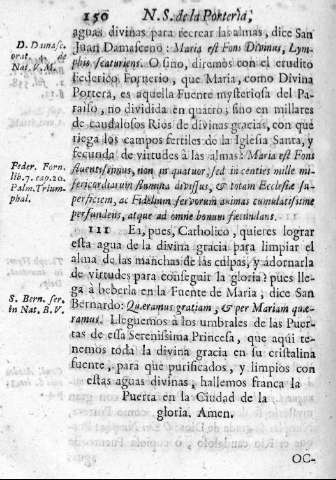 150 N. S. de la Porteria,
aguas divinas para recrear las almas, dice San
Juan Damasceno: Maria est Fons Divinus, Lym-
phis scaturiens. O sino, diremos con el erudito
Federico Fornerio, que Maria, como Divina
Portera, es aquella Fuente mysteriosa del Pa-
raiso, no dividida en quatro, sino en millares
de caudalosos Rios de divinas gracias, con que
riega los campos fertiles de la Iglesia Santa, y
fecunda de virtudes à las almas: Maria est Fons
fluentissimus, non in quatuor, sed in centies mille mi-
sericordiarum flumina divisus, & totam Ecclesiæ su-
perficiem, ac Fidelium fervorum animas cumulatissime
perfundens, atque ad omne bonum fœcundans.
111 Ea, pues, Catholico, quieres lograr
esta agua de la divina gracia para limpiar el
alma de las manchas de las culpas, y adornarla
de virtudes para conseguir la gloria? pues lle-
ga à beberla en la Fuente de Maria, dice San
Bernardo: Quæramus gratiam, & per Mariam quæ-
ramus. Lleguemos à los umbrales de las Puer-
tas de essa Serenissima Princesa, que aqui te-
nemos toda la divina gracia en su cristalina
fuente, para que purificados, y limpios con
estas aguas divinas, hallemos franca la
Puerta en la Ciudad de la
gloria. Amen.
OC-
D. Damasc.
orat. de
Nat. V. M.
Feder. Forn.
lib. 7. cap. 20.
Palm. Trium-
phal.
S. Bern. ser.
in Nat. B. V.